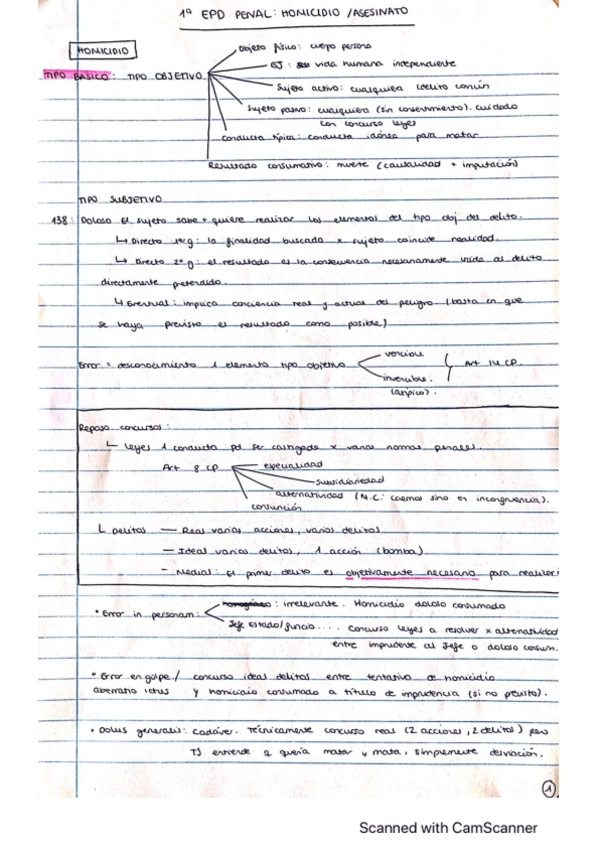 1ª EPD PENAL: HOMICIDIO / ASESINATO
HOMICIDIO
Objeto físico: cuerpo persona
BJ: vida humana independiente
TIPO BÁSICO: TIPO OBJETIVO
Sujeto activo: cualquiera (delito común)
Sujeto pasivo: cualquiera (sin consentimiento). cuidado
con concurso leyes
conducta típica: conducta idónea para matar
Resultado consumativo: muerte (causalidad + imputación)
TIPO SUBJETIVO
138: Doloso El sujeto sabe + quiere realizar los elementos del tipo obj del delito.
↳ Directo 1er g: la finalidad buscada x sujeto coincide realidad.
↳ Directo 2º g: el resultado es la consecuencia necesariamente unida al delito
directamente pretendido.
↳ Eventual: implica conciencia real y actual del peligro. (basta en que
se haya previsto el resultado como posible)
vencible
Error = desconocimiento 1 elemento tipo objetivo Art 14 CP.
invencible.
(atípico).
Repaso concursos:
↳ Leyes 1 conducta pd ser castigada x varias normas penales.
Art 8 CP especialidad
subsidiariedad
alternatividad (M.C: caemos sino en incongruencia).
consunción
↳ Delitos — Real varias acciones, varios delitos
— Ideal varios delitos, 1 acción (bomba)
- Medial: El primer delito es objetivamente necesario para realizar
• Error in personam: : irrelevante. Homicidio doloso consumado
Jefe Estado/ .... concurso leyes a resolver x alternatividad
entre imprudente al Jefe o doloso consum.
• Error en golpe / concurso ideal delitos entre tentativa de homicidio
aberratio ictus y homicidio consumado a título de imprudencia (si no previsto).
• Dolus generalis: cadáver. Técnicamente concurso real (2 acciones, 2 delitos) pero
TS entiende q quería matar y mata, simplemente desviación.
1
Scanned with CamScanner